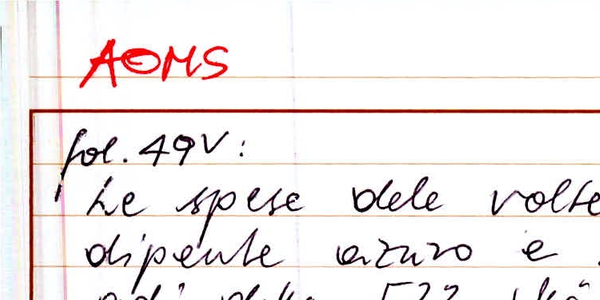 AOMS
fol. 49V:
Le spese dele volte
dipente azuro e